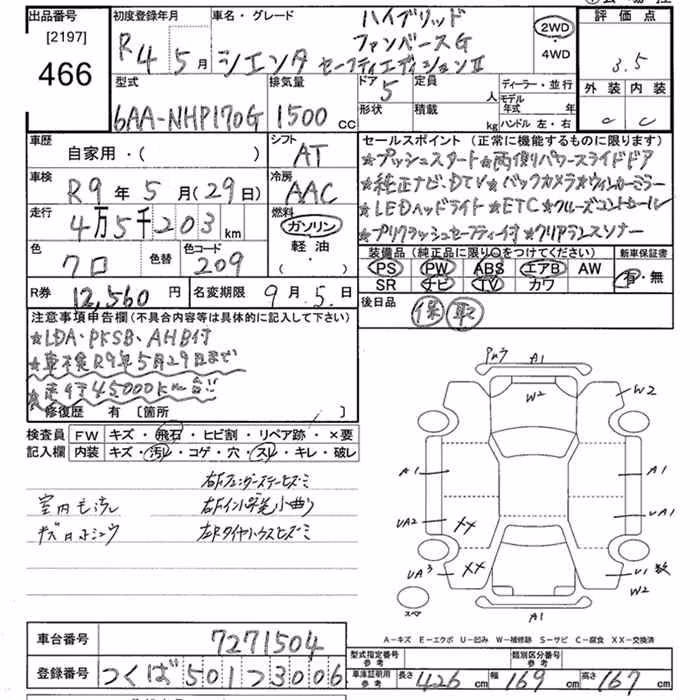 出品番号
[2197]
466
初度登録年月
R4 5月
車名・グレード
シエンタ
ハイブリッド
ファンベースG
セーフティエディションⅡ
2WD
・
4WD
評価点
3.5
外装 内装
C C
型式
6AA-NHP170G
排気量
1500 CC
ドア
5
定員
人
形状
積載
kg
ディーラー・並行
モデル年式 年
ハンドル 左・右
車歴
自家用・( )
シフト
AT
車検
R9年5月(29日)
冷房
AAC
走行
4万5千203km
燃料
ガソリン
軽油
( ・ )
色
クロ
色替
色コード
209
R券
12,560円
名変期限
9月.5.日
セールスポイント(正常に機能するものに限ります)
☆プッシュスタート☆両側パワースライドドア
☆純正ナビ、DTV☆バックカメラ☆ウィンカーミラー
☆LEDヘッドライト☆ETC☆クルーズコントロール
☆プリクラッシュセーフティ付☆クリアランスソナー
装備品(純正品に限り○をつけてください)
PS PW ABS エアB AW
SR ナビ TV カワ
新車保証書
有・無
後日品
保 取
注意事項申告欄(不具合内容等は具体的に記入して下さい)
☆LDA・PKSB・AHB付
☆車検R9年5月29日まで
☆走行45000km台!!
修復歴 有 [箇所 ]
検査員記入欄
FW キズ・飛石・ヒビ割・リペア跡・×要
内装 キズ・汚レ・コゲ・穴・スレ・キレ・破レ
右Fフェンダーステーヒズミ
室内毛汚レ
右Fインナー先小曲り
キズ凹ホシュウ
右Rタイヤハウスヒズミ
A1
W2
W2
A1
A1
UA2
XX
UA1
UA3
XX
U1 数
W2
スペア
A1
A-キズ E-エクボ U-凹み W-補修跡 S-サビ C-腐食 XX-交換済
車台番号
7271504
登録番号
つくば501つ3006
型式指定番号
参考
類別区分番号
参考
車庫証明用
参考
長さ 426cm 幅 169cm 高さ 167cm